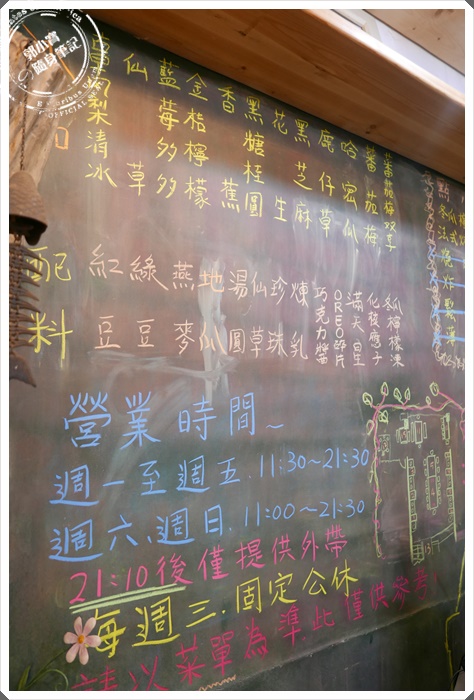 隨身筆記
梨清冰
仙草
藍莓多多
金桔檸檬
香蕉
黑糖桂圓
花生
黑芝麻
鹿仔草
哈密瓜
蕃茄梅
蕃茄梅双享
冬瓜
法式
配料
紅豆
綠豆
燕麥
地瓜
湯圓
仙草
珍珠
煉乳
巧克力醬
OREO碎片
滿天星
化核應子
冬瓜檸檬凍
營業時間~
週一至週五.11:30~21:30
週六、週日.11:00~21:30
21:10後僅提供外帶
每週三.固定公休
請以菜單為準.此僅供參考!